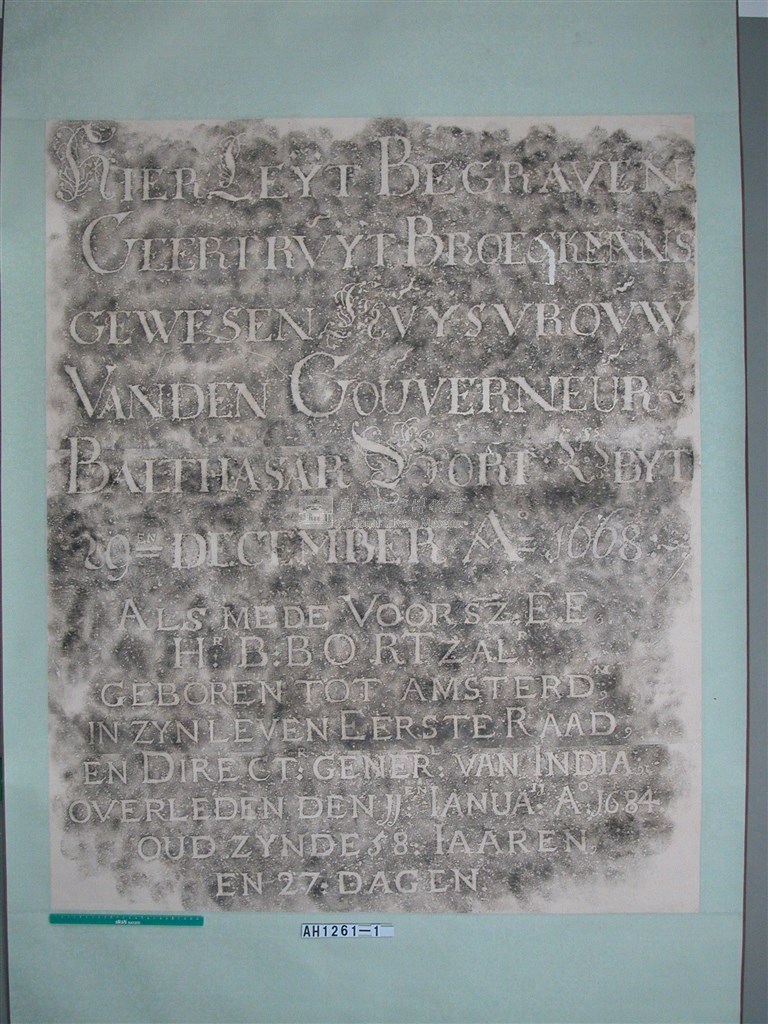 HIER LEYT BEGRAVEN
GEERTRVYT BROECKMANS
GEWESEN HVYSVROVW
VANDEN GOUVERNEUR~
BALTHASAR BORT OBYT
29EN DECEMBER Ao 1668 ~
ALS MEDE VOORSZ. E E.
HR. B: BORT ZALR,
GEBOREN TOT AMSTERDM,
IN ZYN LEVEN EERSTE RAAD,
EN DIRECTR: GENERL: VAN INDIA
OVERLEDEN DEN 11EN IANUAII: Ao. 1684
OUD ZYNDE 58: IAAREN
EN 27: DAGEN
AH1261-1